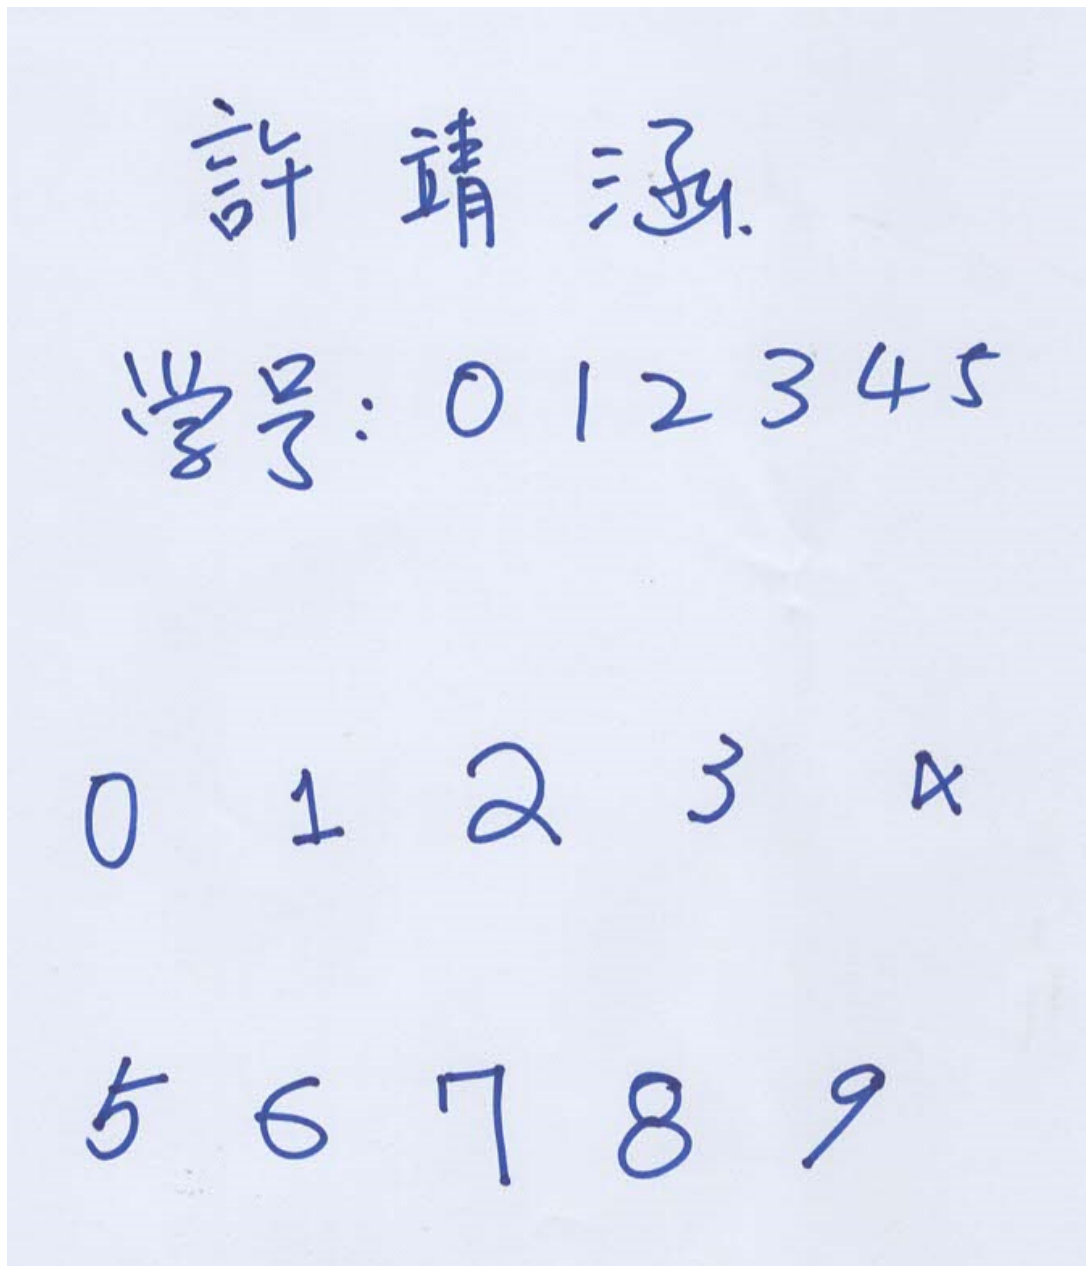 許靖涵
学号: 012345
0 1 2 3 4
5 6 7 8 9